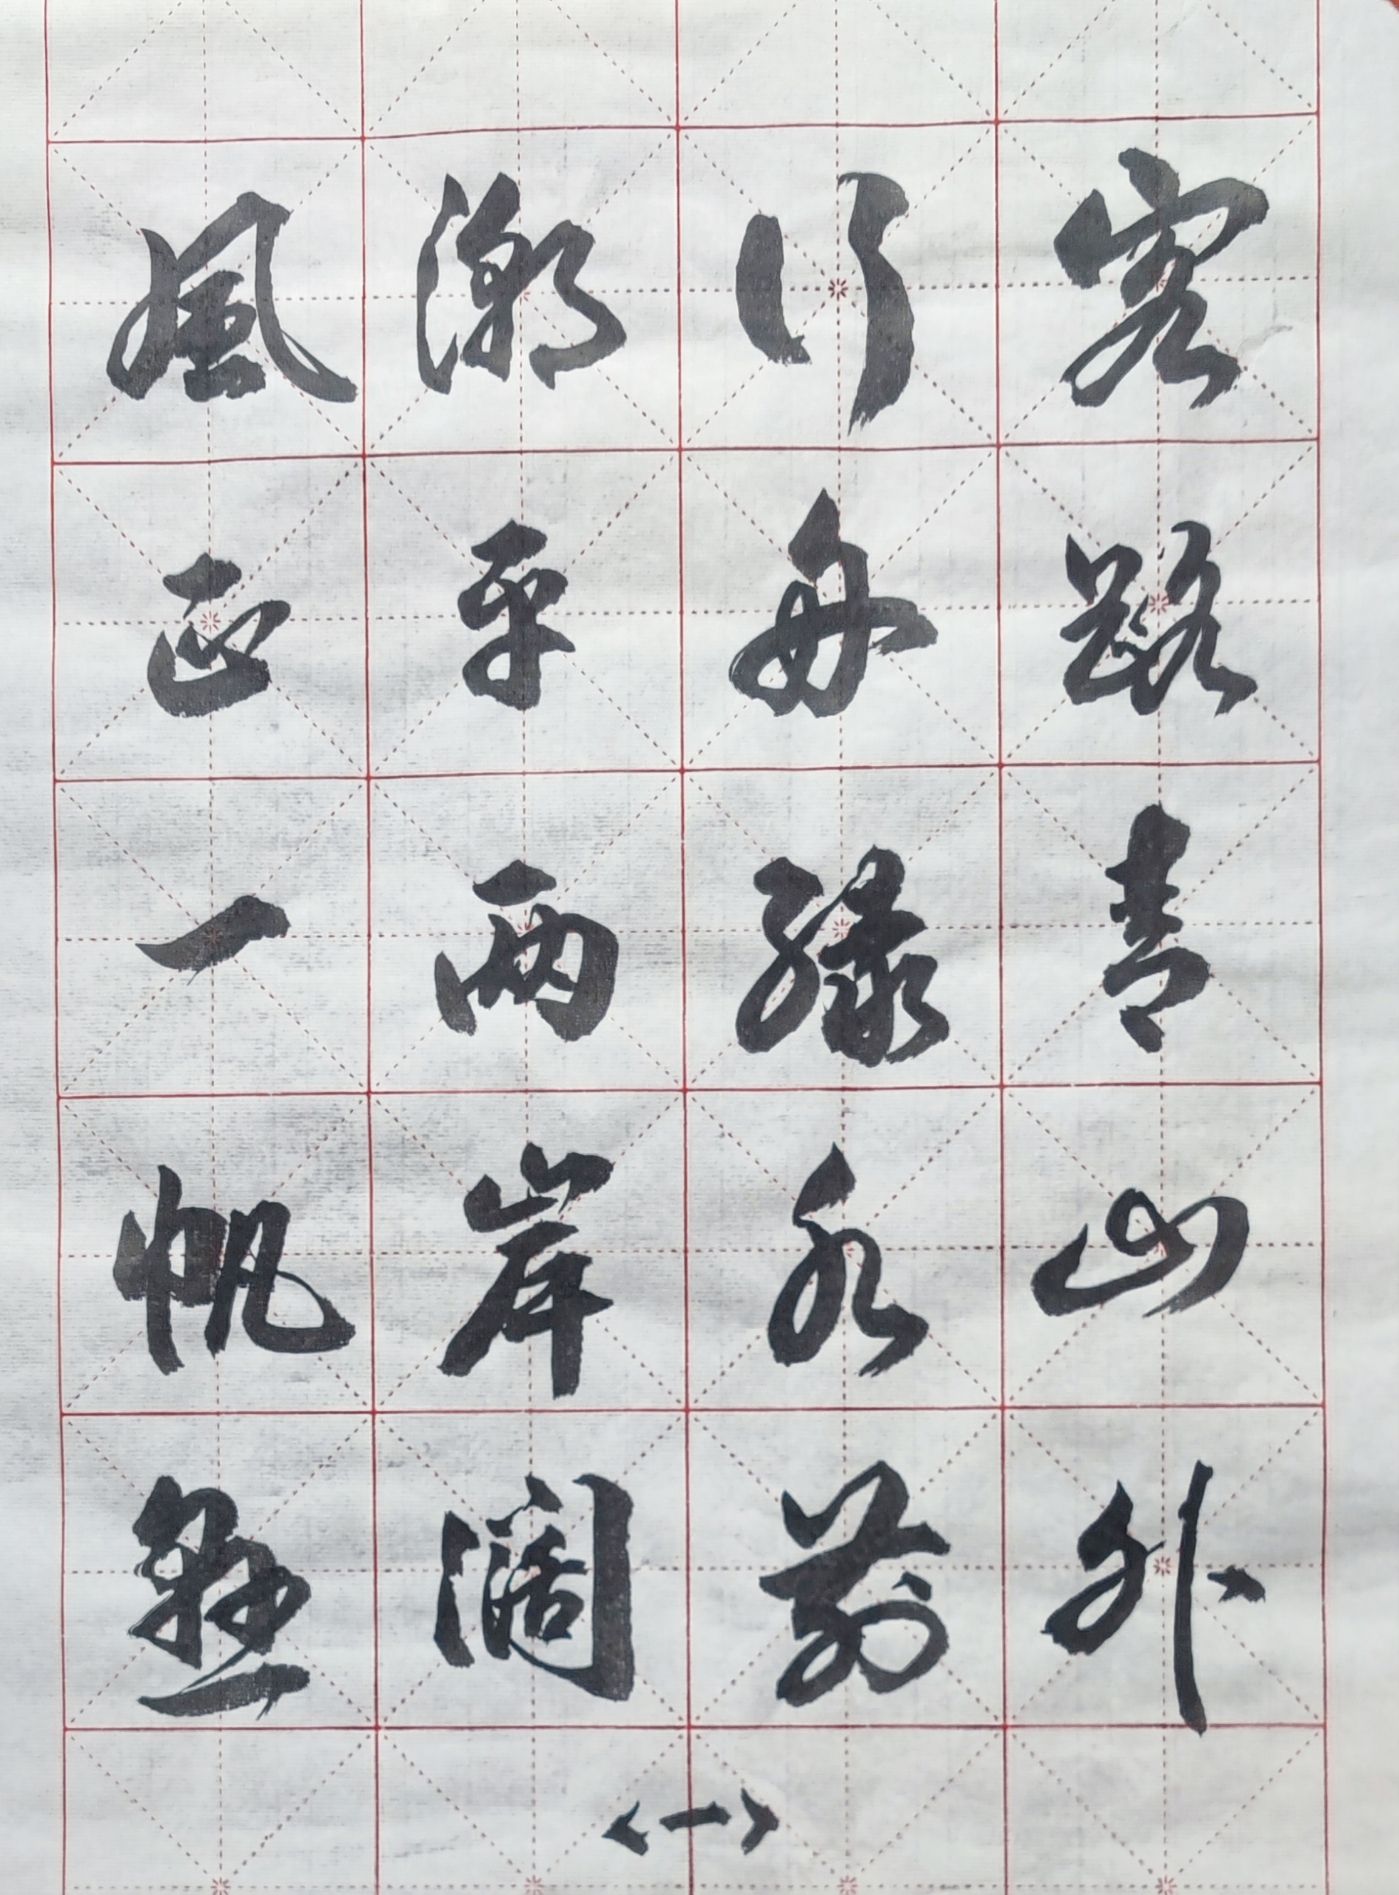 客路青山外
行舟綠水前
潮平兩岸闊
風正一帆懸
<一>